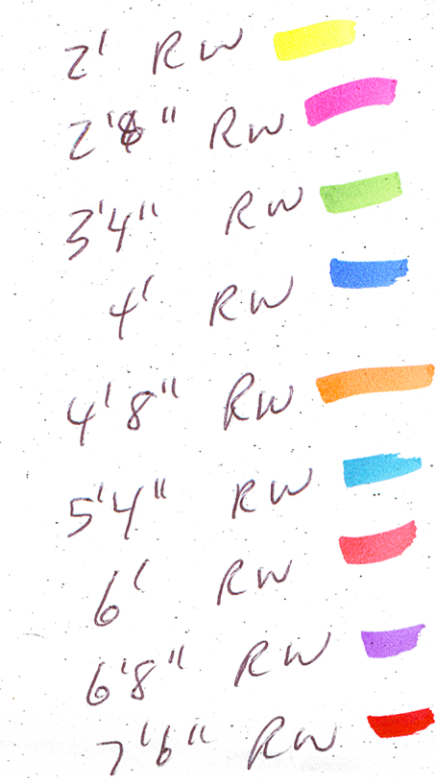 2' RW
2'8" RW
3'4" RW
4' RW
4'8" RW
5'4" RW
6' RW
6'8" RW
7'6" RW